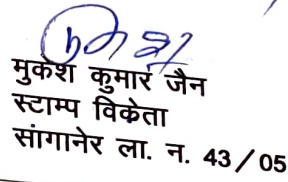 मुकेश कुमार जैन
स्टाम्प विकेता
सांगानेर ला. न. 43 / 05